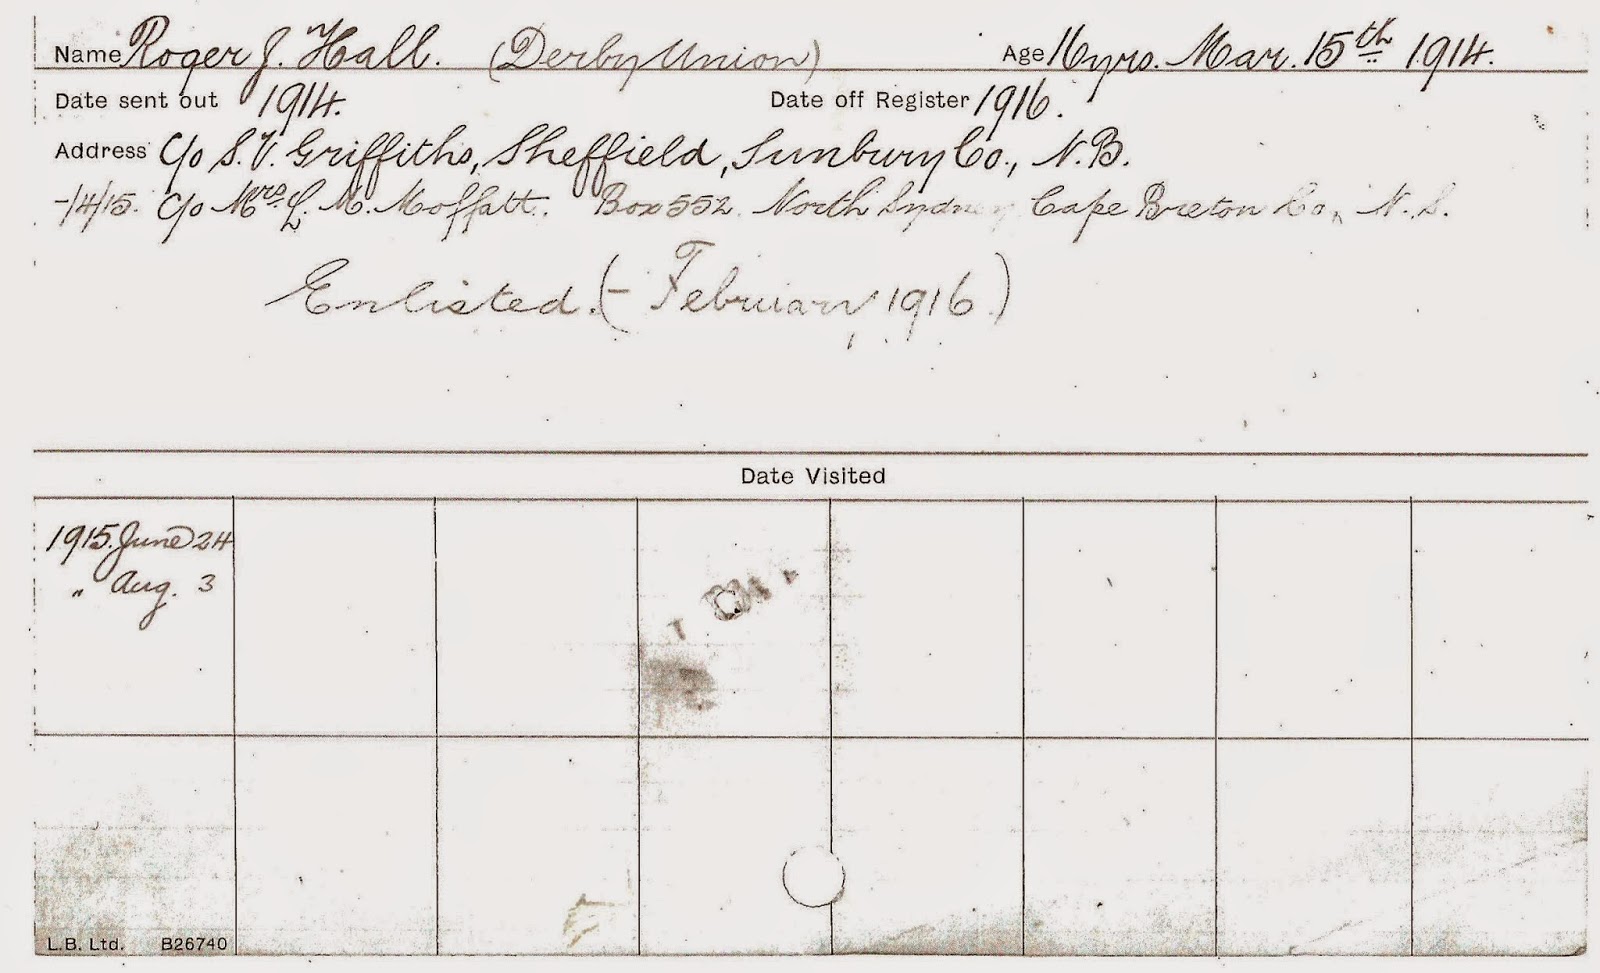 Name Roger J. Hall. (Derby Union) Age 16yrs. Mar. 15th 1914.
Date sent out 1914. Date off Register 1916.
Address C/o S.V. Griffiths, Sheffield, Sunbury Co., N.B.
-/4/15. C/o Mrs. L. M. Moffatt. Box 552 North Sydney Cape Breton Co., N.S.
Enlisted. (- February 1916.)
Date Visited
1915. June 24
" Aug. 3
L.B. Ltd. B26740